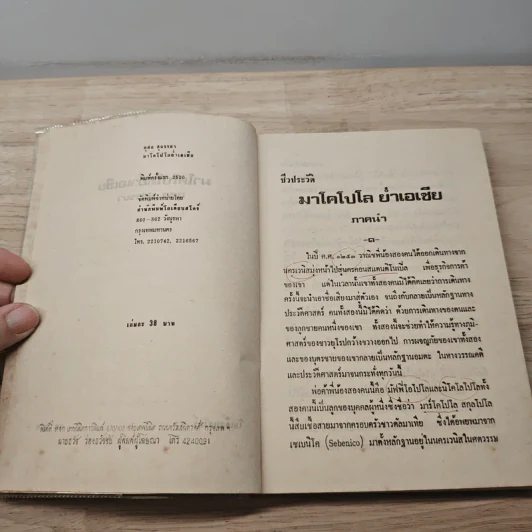 มาโคโปโลย่ำเอเซีย
พิมพ์ครั้งแรก 2520
จัดพิมพ์จำหน่ายโดย
สำนักพิมพ์โอเดียนสโตร์
กรุงเทพมหานคร
โทร. 2210742, 2216567
เล่มละ 38 บาท
ชีวประวัติ
มาโคโปโล ย่ำเอเซีย
ภาคนำ
ในปี ค.ศ. ๑๒๕๓ วาณิชพี่น้องสองคนได้ออกเดินทางจาก
นครเวนิสมุ่งหน้าไปสู่นครคอนสแตนติโนเปิล เพื่อธุรกิจการค้า
ของเขา แต่ในเวลานั้นเขาทั้งสองคนมิได้คิดเลยว่าการเดินทาง
ครั้งนี้จะนำเอาชื่อเสียงมาสู่ตัวเอง จนถึงกับกลายเป็นหลักฐานทาง
ประวัติศาสตร์ คนทั้งสองนี้มิได้คิดว่า ด้วยการเดินทางของตนและ
ของลูกชายคนหนึ่งของเขา ทั้งสองนี้จะช่วยทำให้ความรู้ทางภูมิ-
ศาสตร์ของชาวยุโรปกว้างขวางออกไป การผจญภัยของเขาทั้งสอง
และของบุตรชายของเขากลายเป็นหลักฐานอมตะ ในทางวรรณคดี
และประวัติศาสตร์มาจนกระทั่งทุกวันนี้
พ่อค้าพี่น้องสองคนนี้คือ มัฟฟิโอโปโลและนิโคโลโปโลทั้ง
สองคนนี้เป็นลูกของบุคคลผู้หนึ่งซึ่งชื่อว่า มาร์โคโปโล สกุลโปโล
นี้สืบเชื้อสายมาจากครอบครัวชาวดัลมาเทีย ซึ่งได้อพยพมาจาก
เซเบนิโค (Sebenico) มาตั้งหลักฐานอยู่ในนครเวนิสในศตวรรษ